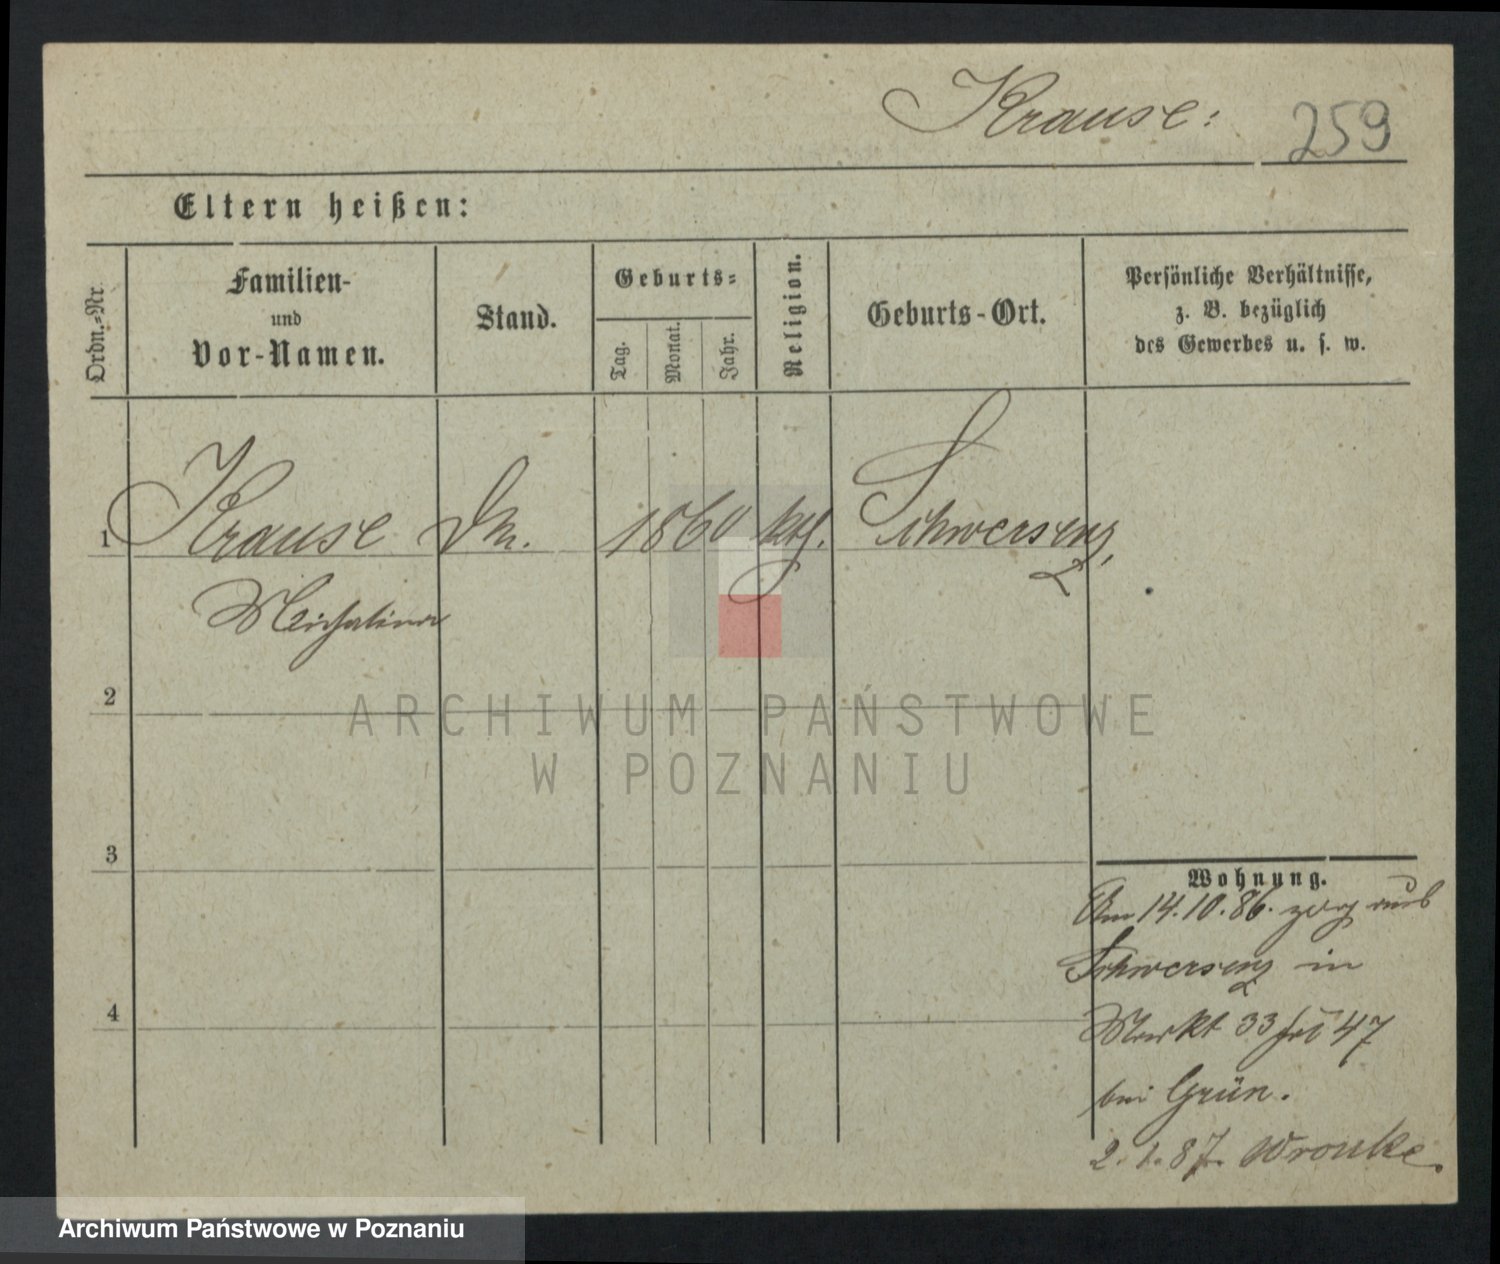 Krause: 259
Eltern heißen:
Ordn.-Nr.
Familien-
und
Vor-Namen.
Stand.
Geburts-
Tag.
Monat.
Jahr.
Religion.
Geburts-Ort.
Persönliche Verhältnisse,
z. B. bezüglich
des Gewerbes u. s. w.
1 Krause 1860 kth. Schwersenz
Michalina
2
3
4
Wohnung.
Am 14.10.86. zog aus
Schwersenz in
Markt 33 47
bei Grün.
2.1.87. Wronke.
ARCHIWUM PAŃSTWOWE
W POZNANIU
Archiwum Państwowe w Poznaniu